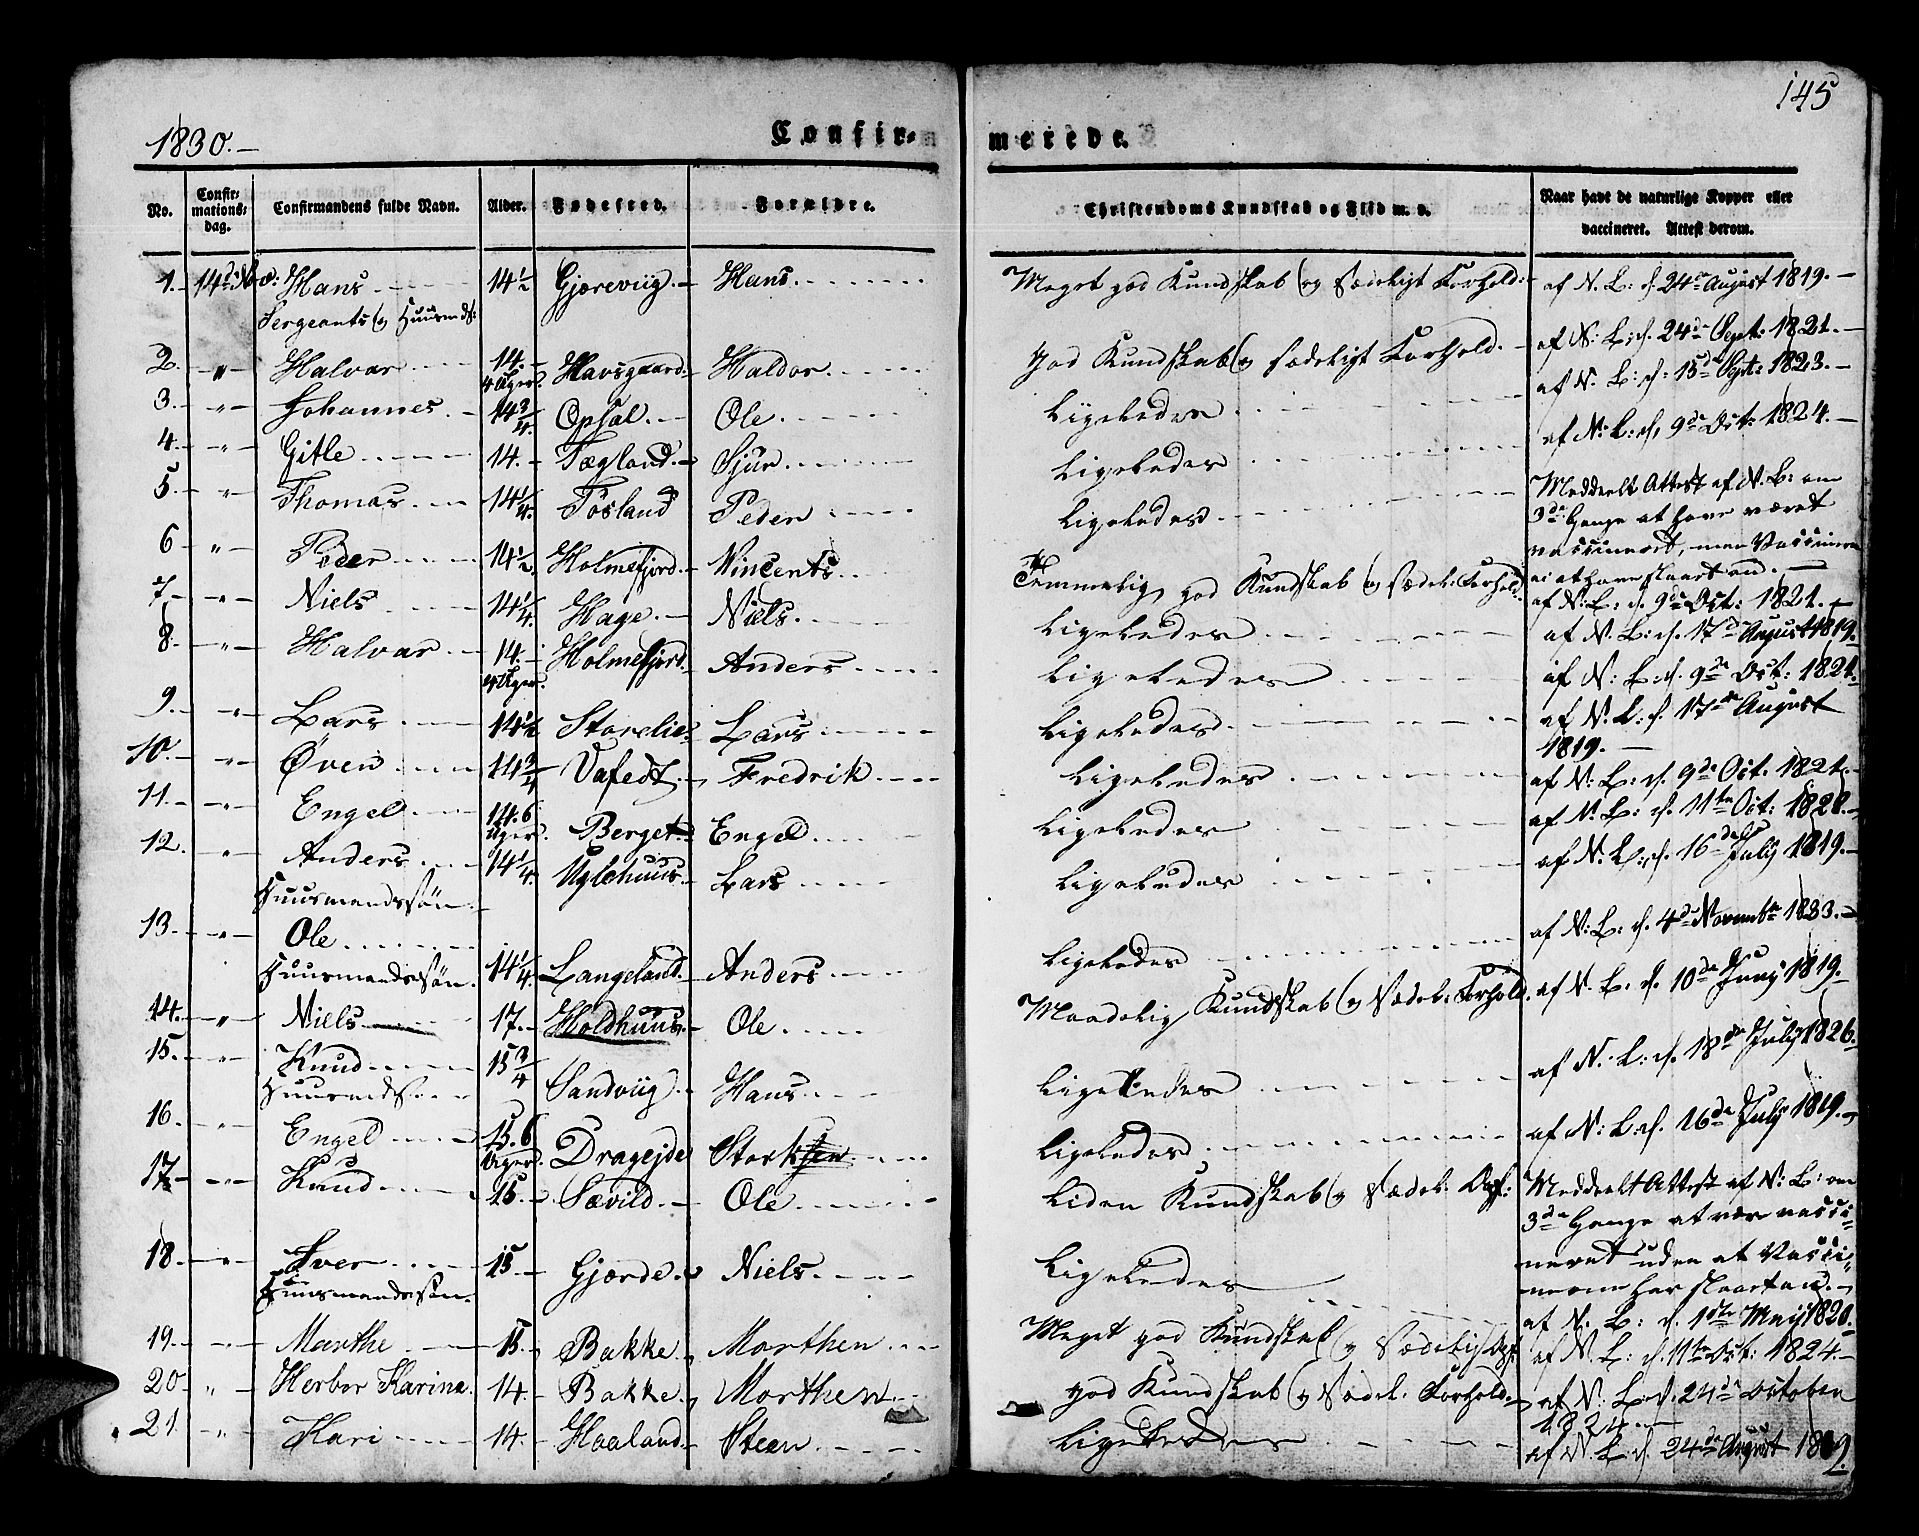 145
1830.
Confir= merede.
No.
Confir=
mations=
dag.
Confirmandens fulde Navn.
Alder.
Fødested.
Forældre.
Christendoms Kundskab og Flid m. v.
Naar have de naturlige Kopper eller
vaccineret. Attest derom.
1. 14de Nov: Hans 14½ Gjerevüg. Hans Meget god Kundskab og Sædeligt Forhold. af N. L: d. 24de August 1819.
Sergeants og Huusmds:
2. " Halvar 14. 4 Uger. Havsgaard. Haldor god Kundskab og sædeligt Forhold. af N: L: d. 24de Sept: 1821.
3. " Johannes 14¾ Opsal. Ole Ligeledes af N. L: d: 15de Sept: 1823.
4. " Gitle 14. Tægland. Sjur Ligeledes af N: L: d. 9de Oct: 1824.
5. " Thomas 14¼ Tøsland Peder Ligeledes Meddeelt Attest af N. L: om
3de Gange at have været
vaccineret, men Vaccinen
ei at have slaaet an.
6 " Peder 14½ Holmefjord. Vincents Temmelig god Kundskab og Sædel. Forhold. af N: L: d. 9de Oct: 1821.
7. " Niels 14¼ Hage. Niels Ligeledes af N. L: d. 17de August 1819.
8. " Halvar 14. 4 Uger. Holmefjord. Anders Ligeledes af N: L: d. 9de Oct: 1821.
9. " Lars 14½ Storelie. Lars Ligeledes af N. L. d. 17de August
1819.
10. " Øven 14¾ Vafedt. Fredrik Ligeledes af N: L: d. 9de Oct. 1821.
11. " Engel 14. 6 Uger. Berget. Engel Ligeledes af N. L: d. 11te Oct: 1828.
12. " Anders 14¼ Uglehuus. Lars Ligeledes af N. L: d. 16de July 1819.
Huusmandssøn.
13. " Ole 14¼ Langeland. Anders Ligeledes af N: L: d. 4de Novembr 1823.
Huusmandssøn.
14. " Niels 17. Holdhuus. Ole Maadelig Kundskab og Sædel: Forhold. af N. L. d. 10de Juny 1819.
15. " Knud 15¾ Sandviig. Hans Ligeledes af N: L: d. 18de July 1826.
Huusmds.
16. " Engel 15. 6 Uger. Dragejde Stork Ligeledes af N: L: d. 16de July 1819.
17. " Knud 15. Sævild. Ole Liden Kundskab og Sædel. Opf: Meddeelt Attest af N: L: om
3de Gange at være vacci=
neret uden at Vacci=
nerne har slaaet an.
18. " Iver 15 Gjerde. Niels Ligeledes af N. L: d. 1ste May 1820.
Huusmandssøn.
19. " Marthe 15. Bakke. Morthen Meget god Kundskab og Sædelig Opf. af N. L: d. 11te Oct: 1824.
20 " Herbor Karina. 14. Bakke. Morthen god Kundskab og Sædel. Forhold. af N: L: d. 24de October
1824.
21 " Kari 14. Haaland. Steen Ligeledes af N. L: d. 24de August 1819.